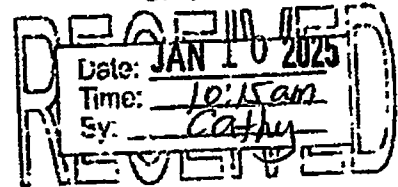 RECEIVED
Date: JAN 10 2025
Time: 10:15am
By: Cathy